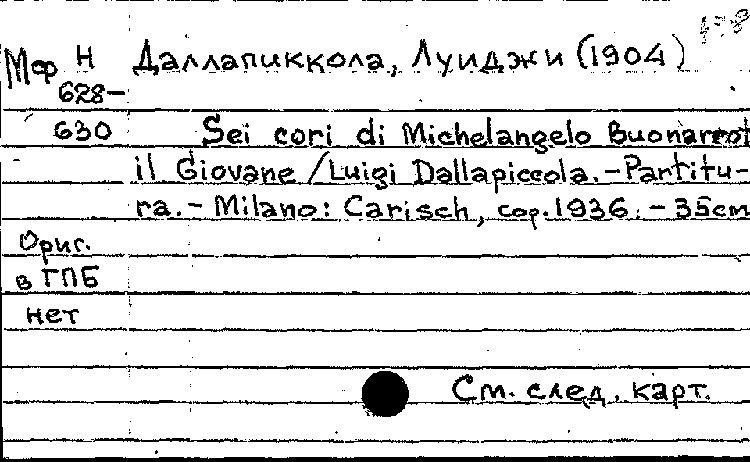 Мф Н Даллапиккола, Луиджи (1904)
628-
630 Sei cori di Michelangelo Buonarrot
il Giovane / Luigi Dallapiccola. - Partitu-
ra. - Milano: Carisch, cop. 1936. - 35cm
Ориг.
в ГПБ
нет
См. след. карт.